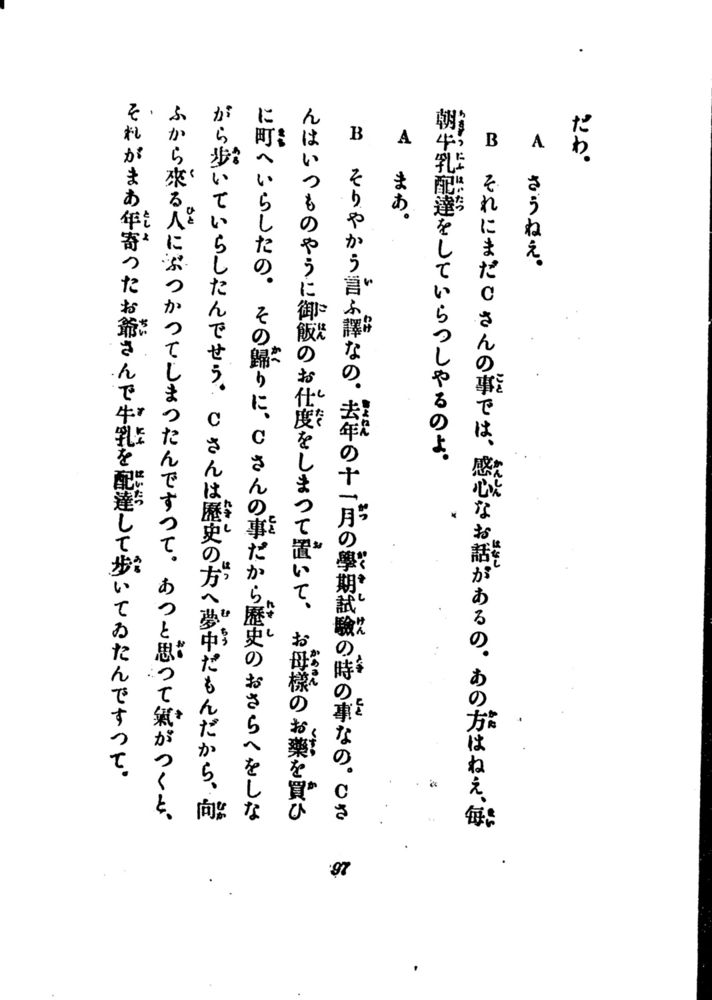 だわ。
A さうねえ。
B それにまだCさんの事では、感心なお話があるの。あの方はねえ、毎
朝牛乳配達をしていらつしやるのよ。
A まあ。
B そりやかう言ふ譯なの。去年の十一月の學期試驗の時の事なの。Cさ
んはいつものやうに御飯のお仕度をしまつて置いて、お母樣のお藥を買ひ
に町へいらしたの。その歸りに、Cさんの事だから歷史のおさらへをしな
がら步いていらしたんでせう。Cさんは歷史の方へ夢中だもんだから、向
ふから來る人にぶつかつてしまつたんですつて。あつと思つて氣がつくと、
それがまあ年寄つたお爺さんで牛乳を配達して步いてゐたんですつて。
97